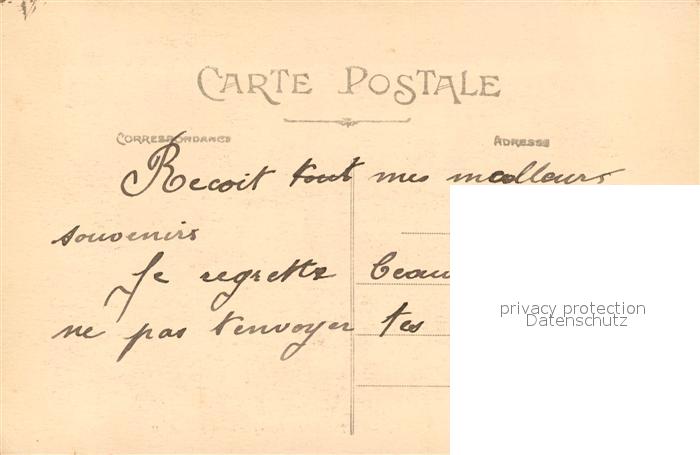 CARTE POSTALE
CORRESPONDANCE
ADRESSE
Recoit tout mes meilleurs
souvenirs
Je regrette beau
ne pas t'envoyer tes
privacy protection
Datenschutz